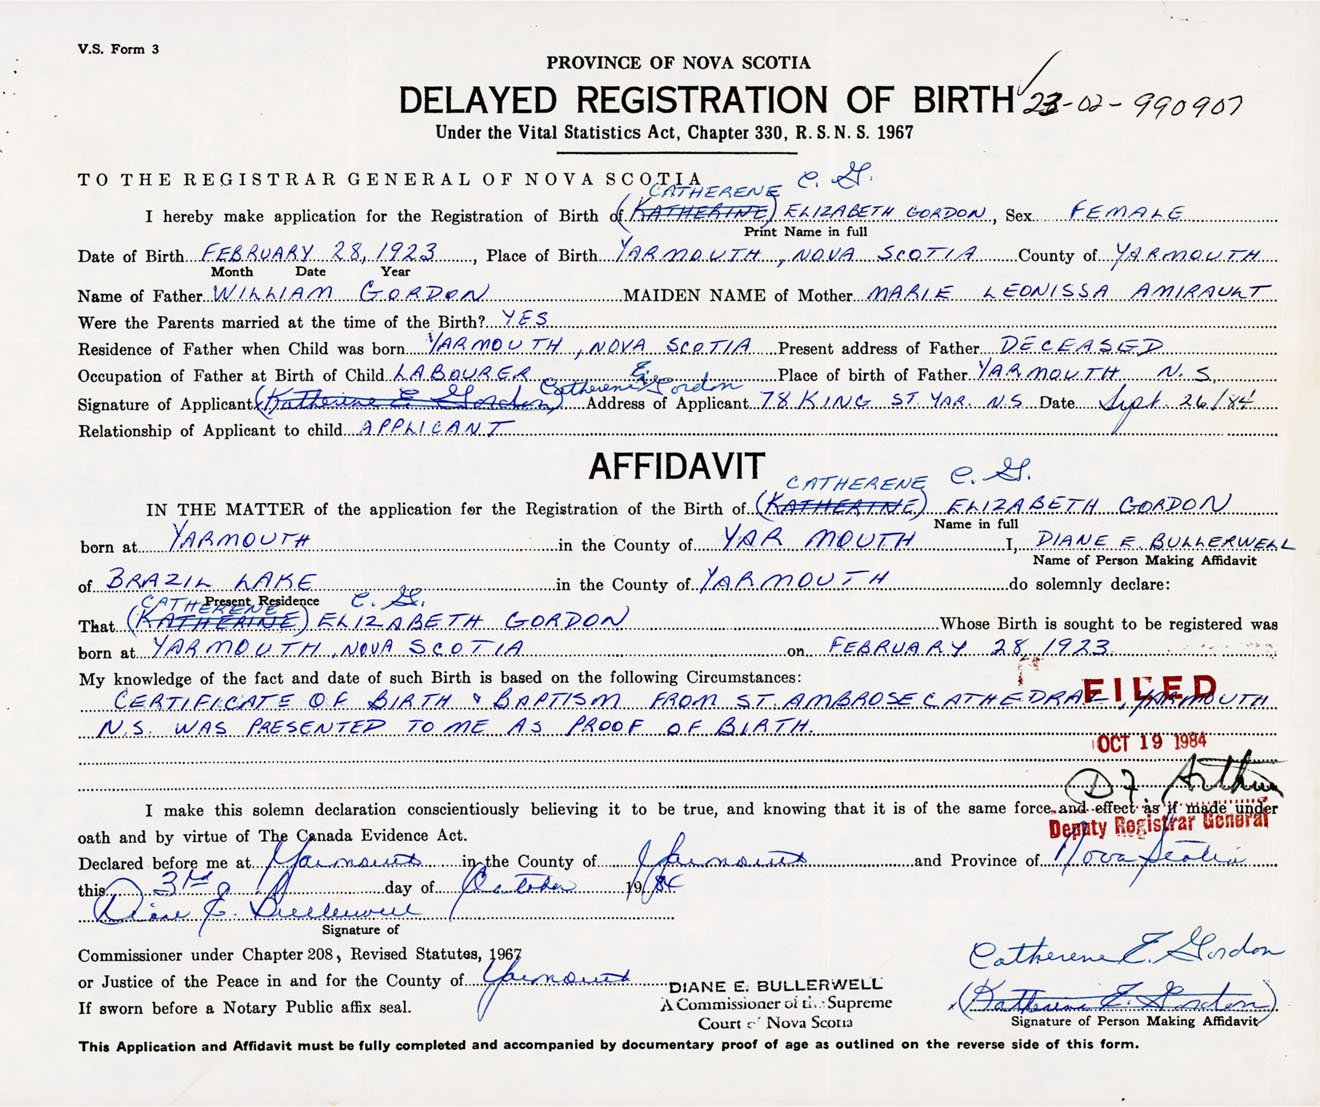 V.S. Form 3
PROVINCE OF NOVA SCOTIA
DELAYED REGISTRATION OF BIRTH 23-02-990907
Under the Vital Statistics Act, Chapter 330, R.S.N.S. 1967
TO THE REGISTRAR GENERAL OF NOVA SCOTIA
CATHERENE C. G.
I hereby make application for the Registration of Birth of (KATHERINE) ELIZABETH GORDON, Sex FEMALE
Print Name in full
Date of Birth FEBRUARY 28, 1923, Place of Birth YARMOUTH, NOVA SCOTIA County of YARMOUTH
Month Date Year
Name of Father WILLIAM GORDON MAIDEN NAME of Mother MARIE LEONISSA AMIRAULT
Were the Parents married at the time of the Birth? YES
Residence of Father when Child was born YARMOUTH, NOVA SCOTIA Present address of Father DECEASED
Occupation of Father at Birth of Child LABOURER Place of birth of Father YARMOUTH N.S.
Catherene E. Gordon
Signature of Applicant (Katherine E. Gordon) Address of Applicant 78 KING ST. YAR. N.S Date Sept. 26/84
Relationship of Applicant to child APPLICANT
AFFIDAVIT
CATHERENE C. G.
IN THE MATTER of the application for the Registration of the Birth of (KATHERINE) ELIZABETH GORDON
Name in full
born at YARMOUTH in the County of YARMOUTH I, DIANE E. BULLERWELL
Name of Person Making Affidavit
of BRAZIL LAKE in the County of YARMOUTH do solemnly declare:
Present Residence
CATHERENE C. G.
That (KATHERINE) ELIZABETH GORDON Whose Birth is sought to be registered was
born at YARMOUTH, NOVA SCOTIA on FEBRUARY 28, 1923
My knowledge of the fact and date of such Birth is based on the following Circumstances:
CERTIFICATE OF BIRTH & BAPTISM FROM ST. AMBROSE CATHEDRAL, YARMOUTH
FILED
N.S. WAS PRESENTED TO ME AS PROOF OF BIRTH.
OCT 19 1984
D F Arthur
I make this solemn declaration conscientiously believing it to be true, and knowing that it is of the same force and effect as if made under
Deputy Registrar General
oath and by virtue of The Canada Evidence Act.
Declared before me at Yarmouth in the County of Yarmouth and Province of Nova Scotia
this 3rd day of October 1984
Diane E. Bullerwell
Signature of
Commissioner under Chapter 208, Revised Statutes, 1967
Catherene E. Gordon
or Justice of the Peace in and for the County of Yarmouth
DIANE E. BULLERWELL
If sworn before a Notary Public affix seal.
A Commissioner of the Supreme
(Katherine E. Gordon)
Court of Nova Scotia
Signature of Person Making Affidavit
This Application and Affidavit must be fully completed and accompanied by documentary proof of age as outlined on the reverse side of this form.